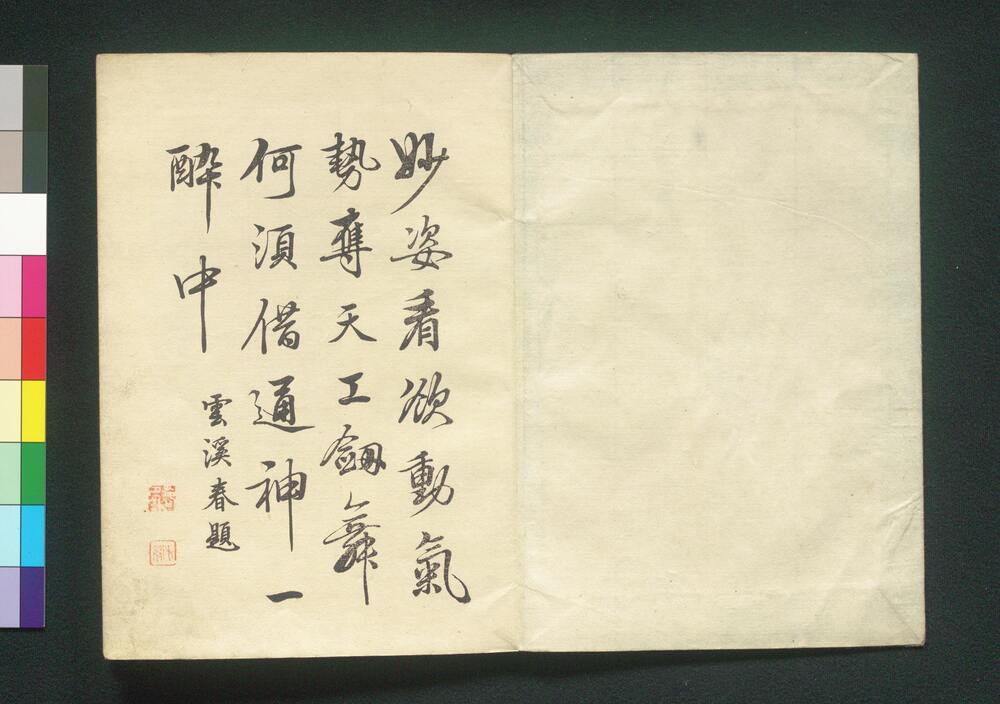 妙姿看欲動氣
勢奪天工劔舞
何須借通神一
醉中
雲溪春題